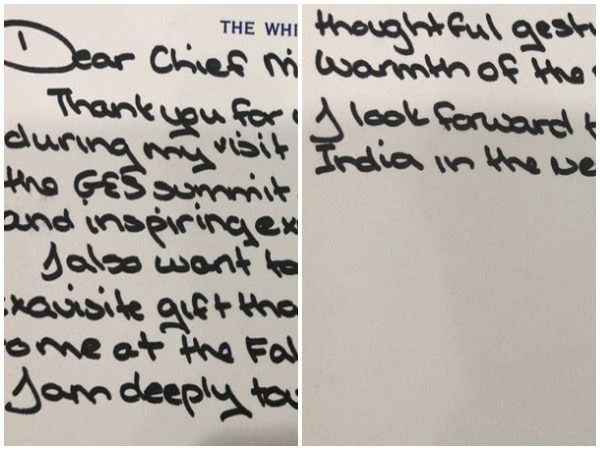 THE WHI
Dear Chief Mi
Thank you for
during my visit
the GES summit
and inspiring ex
I also want to
xquisite gift tha
ome at the Fal
I am deeply tou
thoughtful gestu
warmth of the
I look forward t
India in the we